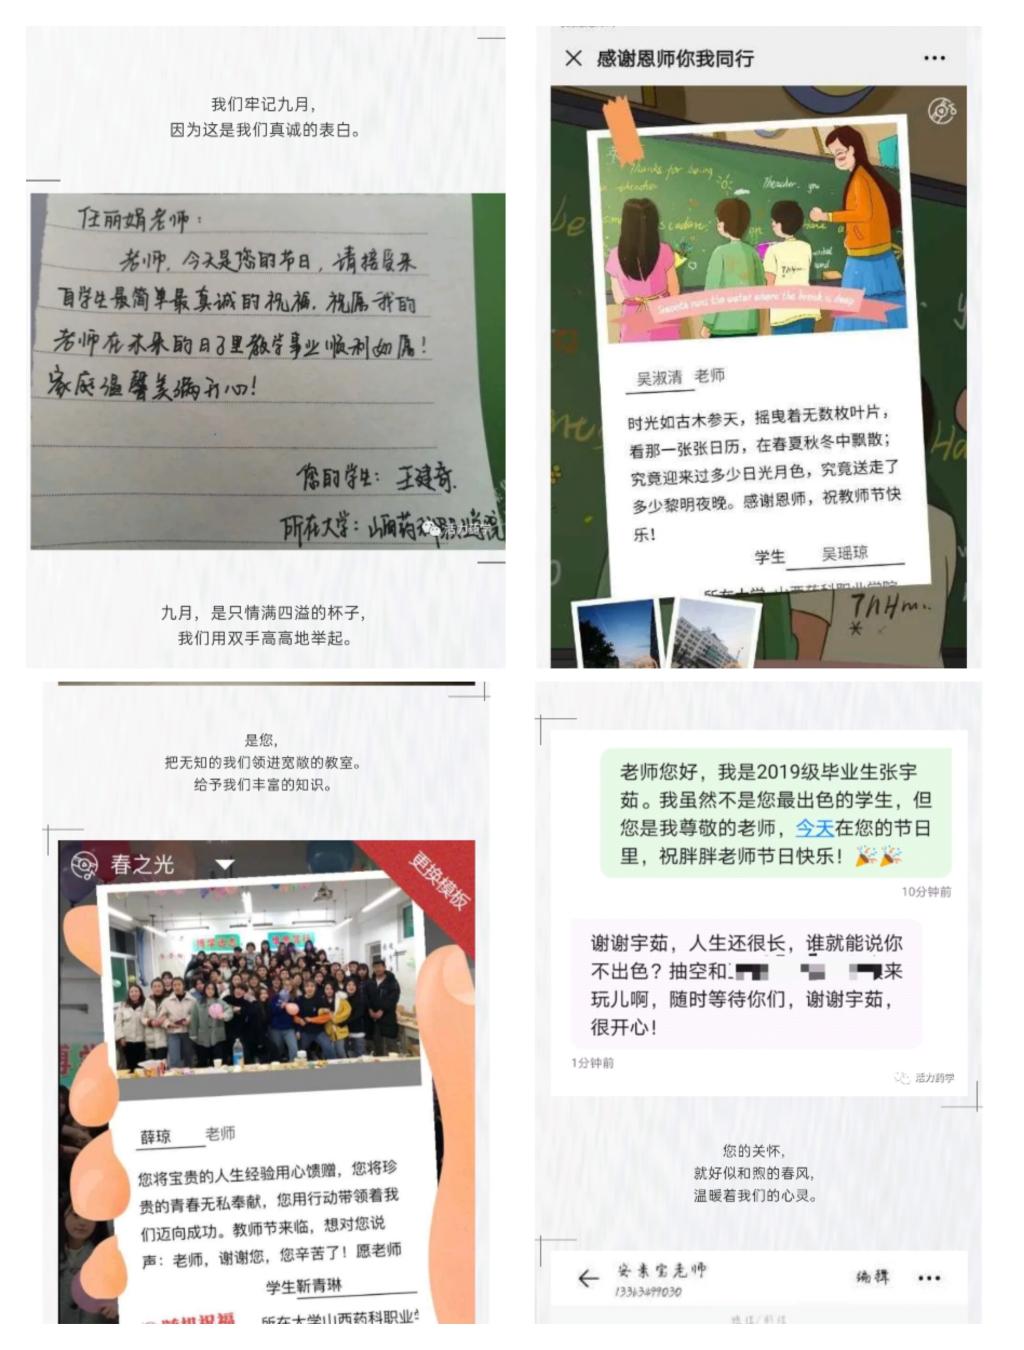 我们牢记九月，
因为这是我们真诚的表白。
任丽娟老师：
老师，今天是您的节日，请接受来
自学生最简单最真诚的祝福，祝愿我的
老师在未来的日子里教学事业顺利如愿！
家庭温馨美满开心！
您的学生：王建奇
所在大学：山西药科职业学院
活力药学
九月，是只情满四溢的杯子，
我们用双手高高地举起。
感谢恩师你我同行
Thanks for being
teacher
Teacher. you
Smooth runs the water where the brook is deep
吴淑清 老师
时光如古木参天，摇曳着无数枚叶片，
看那一张张日历，在春夏秋冬中飘散；
究竟迎来过多少日光月色，究竟送走了
多少黎明夜晚。感谢恩师，祝教师节快
乐！
学生 吴瑶琼
所在大学 山西药科职业学院
是您，
把无知的我们领进宽敞的教室。
给予我们丰富的知识。
春之光
更换模板
薛琼 老师
您将宝贵的人生经验用心馈赠，您将珍
贵的青春无私奉献，您用行动带领着我
们迈向成功。教师节来临，想对您说
声：老师，谢谢您，您辛苦了！愿老师
学生靳青琳
随机祝福
所在大学山西药科职业
老师您好，我是2019级毕业生张宇
茹。我虽然不是您最出色的学生，但
您是我尊敬的老师，今天在您的节日
里，祝胖胖老师节日快乐！🎉🎉
10分钟前
谢谢宇茹，人生还很长，谁就能说你
不出色？抽空和 来
玩儿啊，随时等待你们，谢谢宇茹，
很开心！
1分钟前
活力药学
您的关怀，
就好似和煦的春风，
温暖着我们的心灵。
安素宝老师
编辑
13363499030